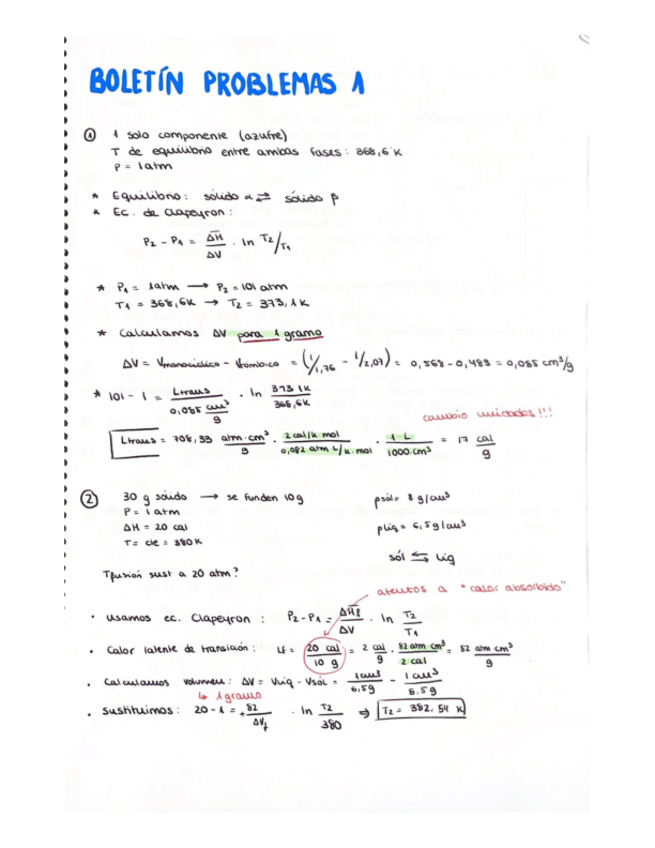 BOLETÍN PROBLEMAS 1
① 1 solo componente (azufre)
T de equilibrio entre ambas fases: 368,6 K
P = 1 atm
* Equilibrio: sólido α ⇄ sólido β
* Ec. de Clapeyron:
P2 - P1 = ΔH̄/ΔV · ln T2/T1
* P1 = 1atm → P2 = 101 atm
T1 = 368,6K → T2 = 373,1K
* Calculamos ΔV para 1 gramo
ΔV = Vmonoclínico - Vrómbico = (1/1,76 - 1/2,07) = 0,568 - 0,483 = 0,085 cm³/g
* 101 - 1 = Ltrans / 0,085 cm³/g · ln 373,1K / 368,6K
cambio unidades!!!
Ltrans = 708,33 atm·cm³/g · 2 cal/k mol / 0,082 atm L/k·mol · 1 L / 1000 cm³ = 17 cal/g
② 30 g sólido → se funden 10g ρsól= 8 g/cm³
P = 1 atm
ΔH = 20 cal ρliq = 6,5g/cm³
T = cte = 380K
sól ⇆ liq
Tfusión sust a 20 atm?
atentos a "calor absorbido"
· Usamos ec. Clapeyron: P2-P1 = ΔH̄f/ΔV · ln T2/T1
· Calor latente de transición: Lf = 20 cal/10 g = 2 cal/g · 82 atm·cm³/2 cal = 82 atm cm³/g
· Calculamos volumen: ΔV = Vliq - Vsól = 1cm³/6,5g - 1cm³/8.5g
↳ 1 gramo
· Sustituimos: 20 - 1 = +82/ΔVf · ln T2/380 ⇒ T2 = 382,54 K